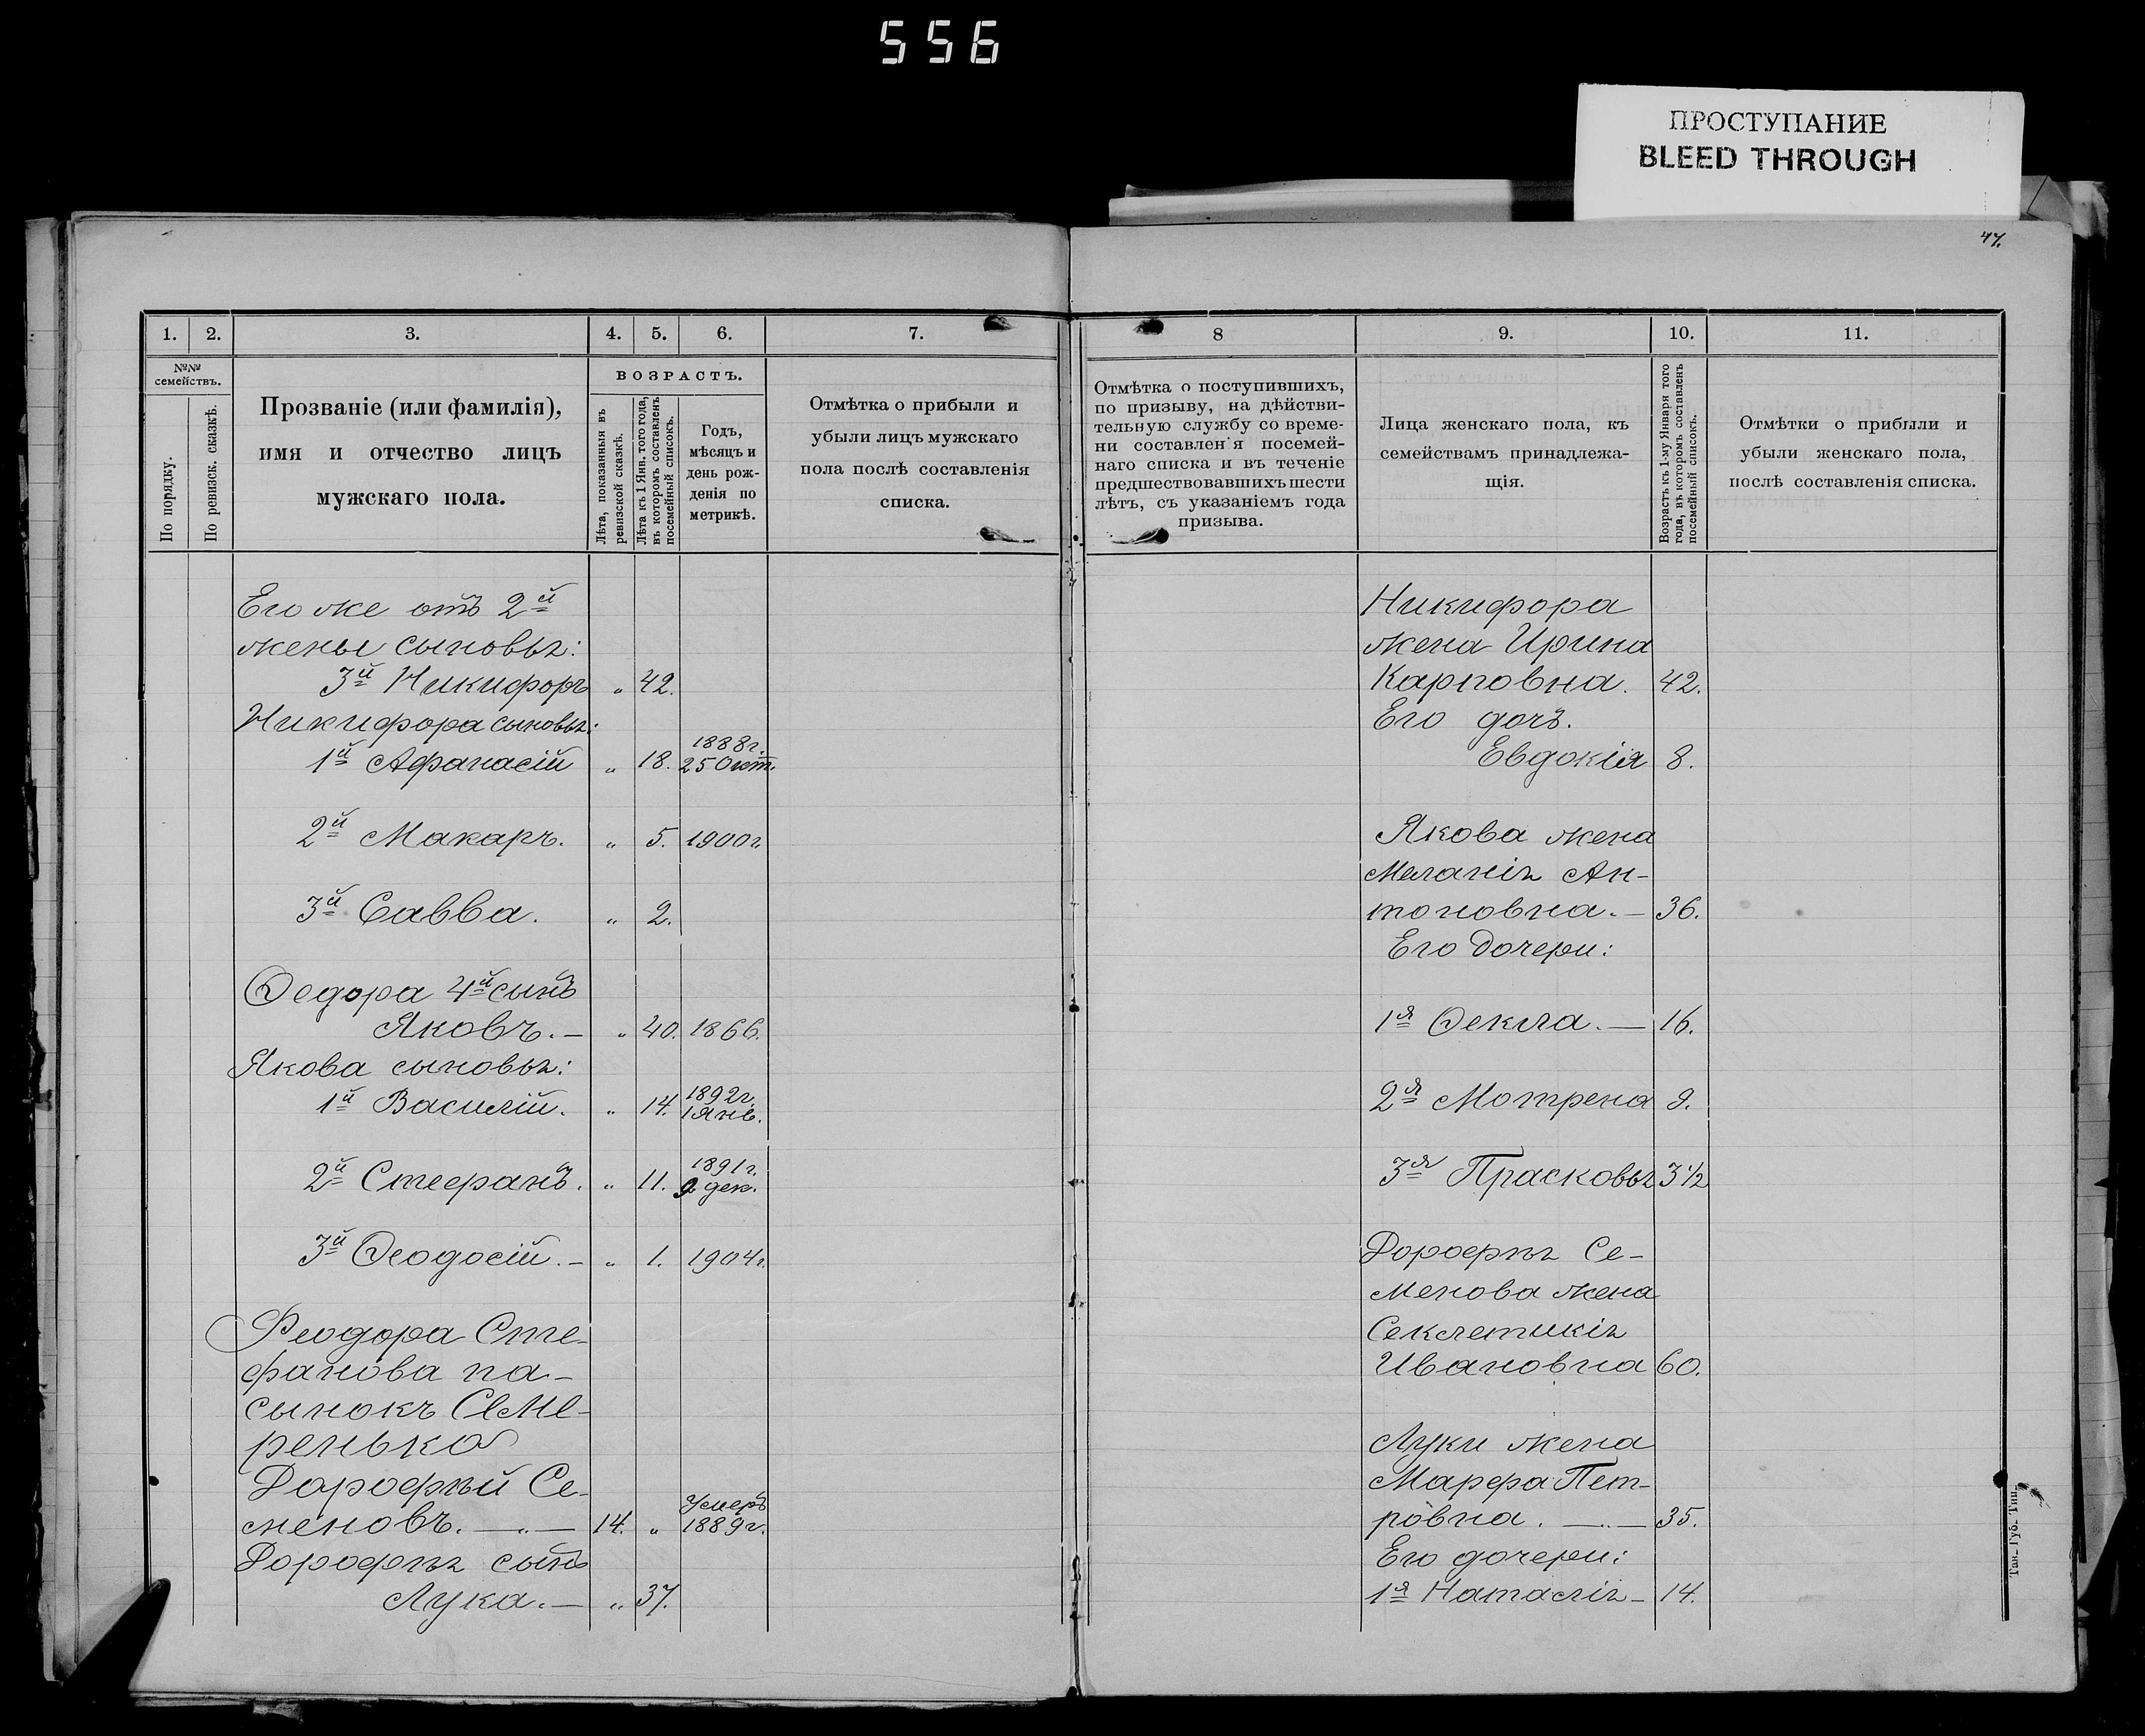 556
ПРОСТУПАНИЕ
BLEED THROUGH
47.
1. 2. 3. 4. 5. 6. 7.
№№ семействъ.
По порядку.
По ревизск. сказкѣ.
Прозваніе (или фамилія),
имя и отчество лицъ
мужскаго пола.
ВОЗРАСТЪ.
Лѣта, показанныя въ
ревизской сказкѣ.
Лѣта къ 1 Янв. того года,
въ которомъ составленъ
посемейный списокъ.
Годъ,
мѣсяцъ и
день рож-
денія по
метрикѣ.
Отмѣтка о прибыли и
убыли лицъ мужскаго
пола послѣ составленія
списка.
Его же отъ 2й
жены сыновья:
3й Никифоръ " 42.
Никифора сыновья:
1й Афанасій " 18. 1888г. 25 Окт.
2й Макаръ. " 5. 1900г.
3й Савва. " 2.
Ѳедора 4й сынъ
Яковъ.— " 40. 1866.
Якова сыновья:
1й Василій. " 14. 1892г. 1 Янв.
2й Стефанъ. " 11. 1891г. 9 дек.
3й Ѳеодосій.— " 1. 1904г.
Феодора Сте-
фанова па-
сынокъ Семе-
ренько
Дорофѣй Се-
меновъ. —"— 14. " Умеръ 1889г.
Дорофѣя сынъ
Лука.— " 37.
8 9. 10. 11.
Отмѣтка о поступившихъ,
по призыву, на дѣйстви-
тельную службу со време-
ни составленія посемей-
наго списка и въ теченіе
предшествовавшихъ шести
лѣтъ, съ указаніемъ года
призыва.
Лица женскаго пола, къ
семействамъ принадлежа-
щія.
Возрастъ къ 1-му Января того
года, въ которомъ составленъ
посемейный списокъ.
Отмѣтки о прибыли и
убыли женскаго пола,
послѣ составленія списка.
Никифора
жена Ирина
Карповна. 42.
Его дочь.
Евдокія 8.
Якова жена
Меланія Ан-
тоновна.— 36.
Его дочери:
1я Ѳекла.— 16.
2я Мотрена 9.
3я Прасковья 3 1/2
Дорофѣя Се-
менова жена
Секлетикія
Ивановна 60.
Луки жена
Марфа Пет-
ровна. —"— 35.
Его дочери:
1я Наталія— 14.
Тав. Губ. Тип.